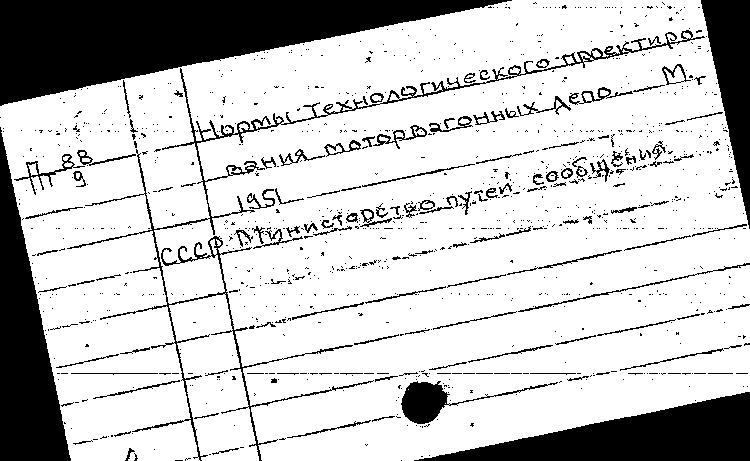 Нормы технологического проектиро-
вания моторвагонных депо. М.,
Пт 8В
9
1951
СССР Министерство путей сообщения.